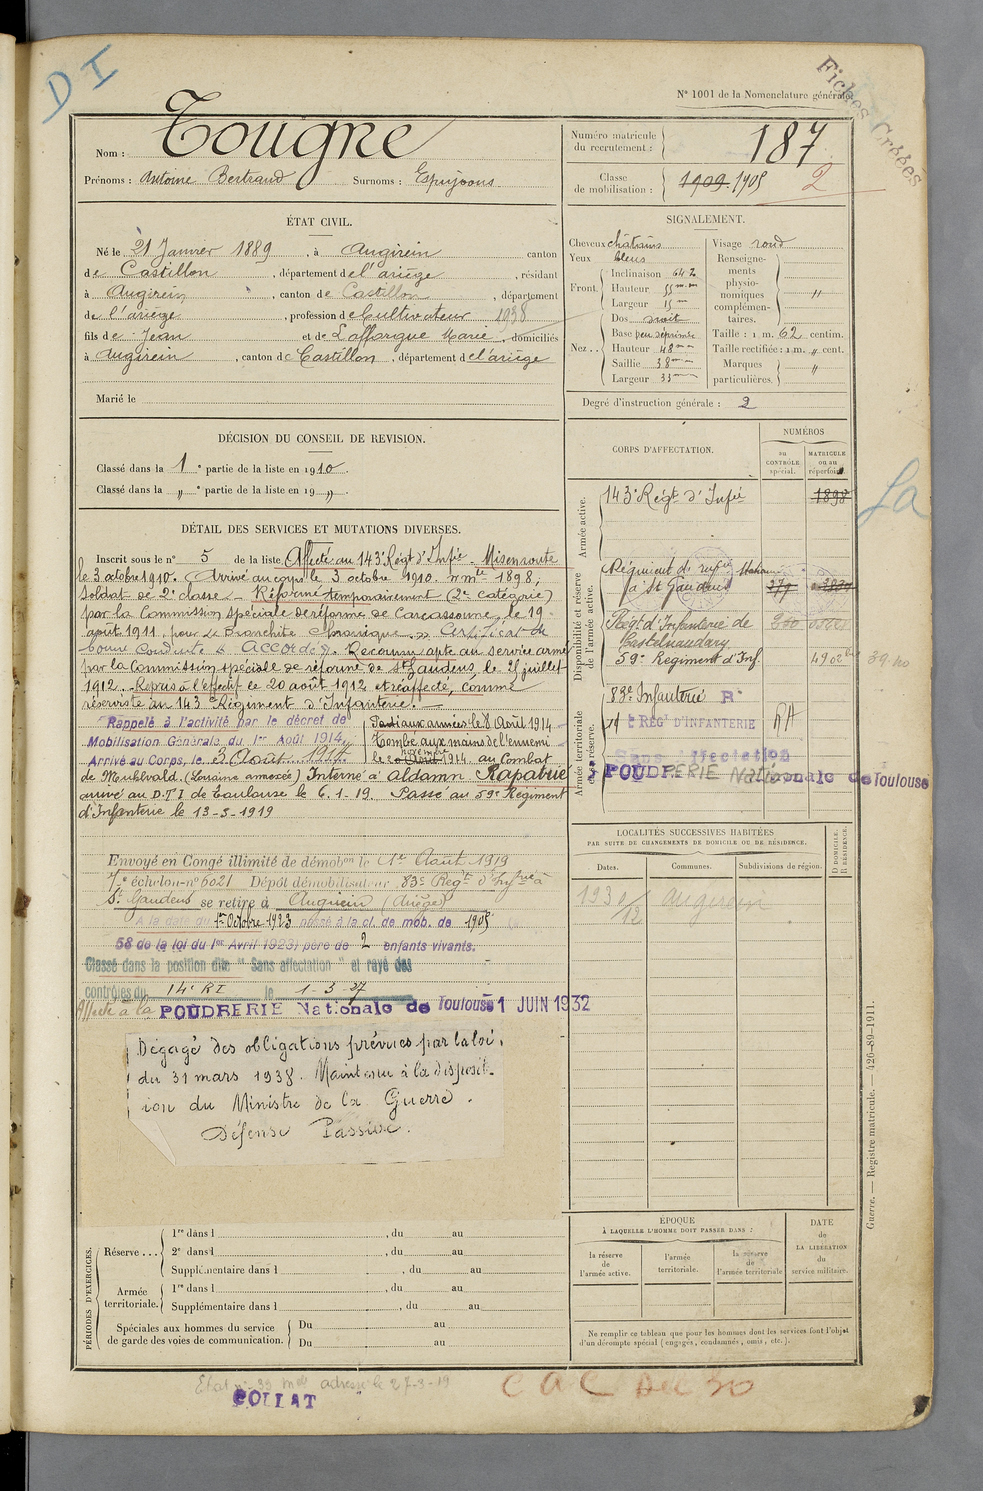 D I
Fiches Créées
N° 1001 de la Nomenclature générale.
Nom : Tougne
Prénoms : Antoine Bertrand Surnoms : Espujoons
Numéro matricule du recrutement : 187
Classe de mobilisation : 1909. 1905 2
ÉTAT CIVIL.
Né le 21 Janvier 1889, à Augirein canton
de Castillon, département de l'ariège, résidant
à Augirein, canton de Castillon, département
de l'ariège, profession de Cultivateur 1938
fils de Jean et de Laffargue Marie, domiciliés
à Augirein, canton de Castillon, département de l'ariège
Marié le
SIGNALEMENT.
Cheveux châtains
Yeux bleus
Front. Inclinaison 64.2
Hauteur 55 m.m
Largeur 15 m
Nez.. Dos
Base peu déprimée
Hauteur 48 mm
Saillie 38 mm
Largeur 35 mm
Visage rond
Renseignements physionomiques complémentaires. "
Taille : 1 m. 62 centim.
Taille rectifiée : 1 m. " cent.
Marques particulières. "
Degré d'instruction générale : 2
DÉCISION DU CONSEIL DE REVISION.
Classé dans la 1e partie de la liste en 1910.
Classé dans la " e partie de la liste en 19 ".
DÉTAIL DES SERVICES ET MUTATIONS DIVERSES.
Inscrit sous le n° 5 de la liste Affecté au 143e Régt d'Infie. Mis en route
le 3 octobre 1910. Arrivé au corps le 3 octobre 1910. n° mle 1898,
Soldat de 2e classe. Réformé temporairement (2e catégorie)
par la Commission spéciale de réforme de Carcassonne, le 19
août 1911, pour Bronchite chronique. Certificat de
bonne Conduite Accordé. Reconnu apte au service armé
par la Commission spéciale de réforme de St Gaudens, le 25 juillet
1912. Repris à l'effectif le 20 août 1912 et réaffecté, comme
réserviste au 143e Régiment d'Infanterie.
Rappelé à l'activité par le décret de
Mobilisation Générale du 1er Août 1914.
Arrivé au Corps, le 3 Août 1914.
Parti aux armées le 8 Août 1914
Tombé aux mains de l'ennemi
le Août novembre 1914 au Combat
de (Lorraine annexée) Interné à aldamn Rapatrié
arrivé au D.T.I de Toulouse le 6.1.19. Passé au 59e Régiment
d'Infanterie le 13-3-1919
Envoyé en Congé illimité de démobon le 1er Août 1919
7e échelon n° 6021 Dépôt démobilisateur 83e Regt d'Infrie à
St Gaudens se retire à Augirein (Ariège)
A la date du 1er Octobre 1923 passé à la cl. de mob. de 1905
58 de la loi du 1er Avril 1923) père de 2 enfants vivants.
Classé dans la position dite " Sans affectation " et rayé des
contrôles du 14e RI le 1-3-27
Affecté à la POUDRERIE Nationale de Toulouse 1 JUIN 1932
Dégagé des obligations prévues par la loi
du 31 mars 1938. Maintenu à la disposit-
ion du Ministre de la Guerre.
Défense Passive.
CORPS D'AFFECTATION.
NUMÉROS
au CONTRÔLE spécial.
MATRICULE ou au répertoire.
Armée active.
143e Régt d'Infie 1898
Disponibilité et réserve de l'armée active.
Régiment de
à St Gaudens 377
Régt d'Infanterie de
Castelnaudary
59e Regiment d'Inf.
Armée territoriale et sa réserve.
83e Infanterie R
REGt D'INFANTERIE RA
Sans affectation
POUDRERIE Nationale de Toulouse
La
LOCALITÉS SUCCESSIVES HABITÉES
PAR SUITE DE CHANGEMENTS DE DOMICILE OU DE RÉSIDENCE.
Dates. Communes. Subdivisions de région. D DOMICILE. R RÉSIDENCE.
1930/12 augirein
ÉPOQUE
À LAQUELLE L'HOMME DOIT PASSER DANS :
la réserve de l'armée active.
l'armée territoriale.
la réserve de l'armée territoriale
DATE de LA LIBÉRATION du service militaire.
Ne remplir ce tableau que pour les hommes dont les services font l'objet
d'un décompte spécial (engagés, condamnés, omis, etc.).
PÉRIODES D'EXERCICES.
Réserve ... 1re dans l , du au
2e dans l , du au
Supplémentaire dans l , du au
Armée territoriale. 1re dans l , du au
Supplémentaire dans l , du au
Spéciales aux hommes du service de garde des voies de communication. Du au
Du au
Guerre. — Registre matricule. — 426-89-1911.
adresse le 27-3-19
POLLAT
C a C Dec 30